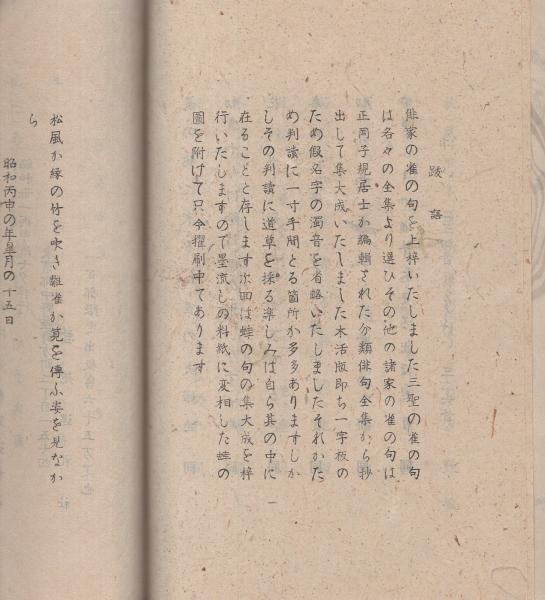 跋語
俳家の雀の句を上梓いたしました三聖の雀の句
は各々の全集より選ひその他の諸家の雀の句は
正岡子規居士か編輯された分類俳句全集から抄
出して集大成いたしました木活版即ち一字板の
ため假名字の濁音を省略いたしましたそれかた
め判讀に一寸手間とる箇所か多多ありますしか
しその判讀に道草を採る楽しみは自ら其の中に
在ることと存します次回は蛙の句の集大成を梓
行いたしますので墨流しの料紙に変相した蛙の
圖を附けて只今擢刷中てあります
一
松風か縁の竹を吹き雛雀か筧を傳ふ姿を見なか
ら
昭和丙申の年皐月の十五日